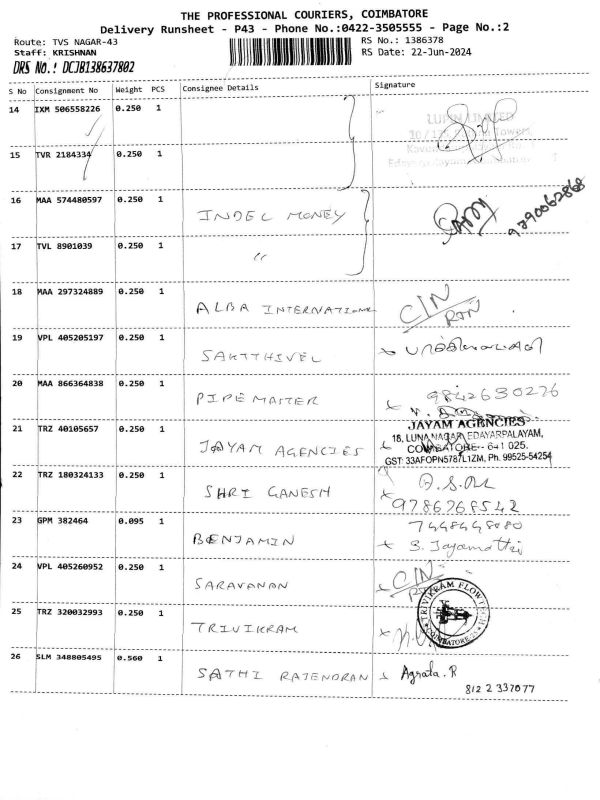 THE PROFESSIONAL COURIERS, COIMBATORE
Delivery Runsheet - P43 - Phone No.:0422-3505555 - Page No.:2
Route: TVS NAGAR-43
RS No.: 1386378
Staff: KRISHNAN
RS Date: 22-Jun-2024
DRS No.: DCJB138637802
S No Consignment No Weight PCS Consignee Details Signature
14 IXM 506558226 0.250 1
LUPIN LIMITED
15 TVR 2184334 0.250 1
16 MAA 574480597 0.250 1 INDEL MONEY
17 TVL 8901039 0.250 1 "
18 MAA 297324889 0.250 1 ALBA INTERNATIONAL C/N
19 VPL 405205197 0.250 1 SAKTTHIVEL
20 MAA 866364838 0.250 1 PIPE MASTER 9842630226
21 TRZ 40105657 0.250 1 JAYAM AGENCIES
JAYAM AGENCIES
18, LUNA NAGAR, EDAYARPALAYAM,
COIMBATORE - 641 025.
GST: 33AFOPN5787L1ZM, Ph. 99525-54254
22 TRZ 180324133 0.250 1 SHRI GANESH
9786768542
23 GPM 382464 0.095 1 BENJAMIN
7448448080
24 VPL 405260952 0.250 1 SARAVANAN C/N
25 TRZ 320032993 0.250 1 TRIVIKRAM
TRIVIKRAM FLOW
COIMBATORE
26 SLM 348805495 0.560 1 SATHI RAJENDRAN Agrata.R
812 2 337077